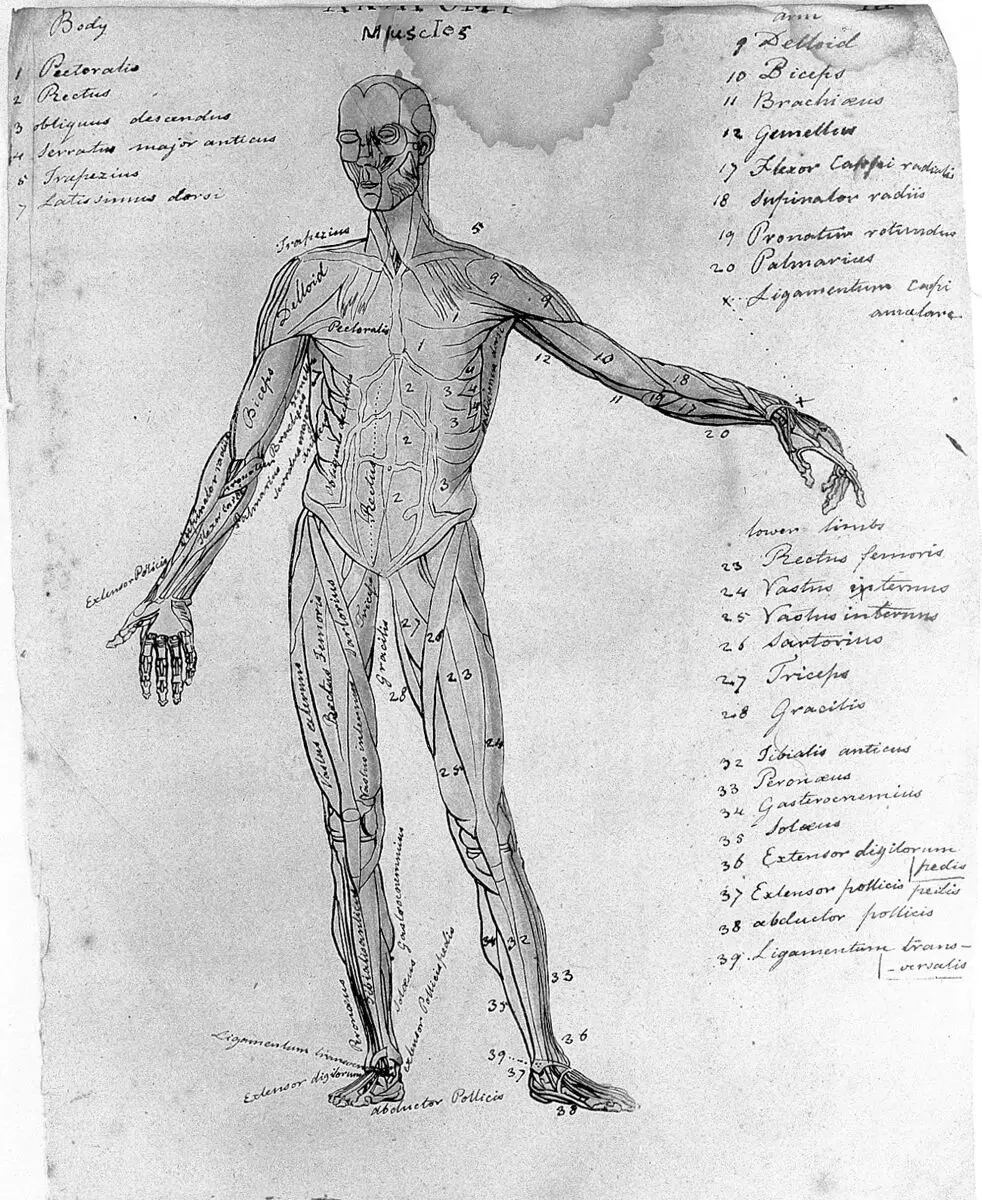 ANATOMY
Muscles
Body
1 Pectoralis
2 Rectus
3 obliquus descendus
4 Serratus major anticus
5 Trapezius
7 Latissimus dorsi
arm
9 Deltoid
10 Biceps
11 Brachiæus
12 Gemellus
17 Flexor Carpi radialis
18 Supinator radii
19 Pronator rotundus
20 Palmarius
x Ligamentum Carpi
anulare
Trapezius
5
Deltoid
9
9
Pectoralis
1
Biceps
12
10
11
18
19
17
20
x
2
3
4
4
3
2
3
2
Rectus
Supinator radii
Palmarius
Extensor Pollicis
lower limbs
23 Rectus femoris
24 Vastus internus
25 Vastus internus
26 Sartorius
27 Triceps
28 Gracilis
32 Tibialis anticus
33 Peronæus
34 Gasterocnemius
35 Solæus
36 Extensor digitorum
pedis
37 Extensor pollicis pedis
38 abductor pollicis
39. Ligamentum trans-
-versalis
Vastus externus
Rectus Femoris
Sartorius
Triceps
Gracilis
Vastus internus
27
26
28
23
24
25
Peronæus
Tibialis anticus
Solæus
Gastocnemius
extensor Pollicis pedis
34
32
33
35
36
39
37
38
Ligamentum transver
Extensor digitorum
abductor Pollicis